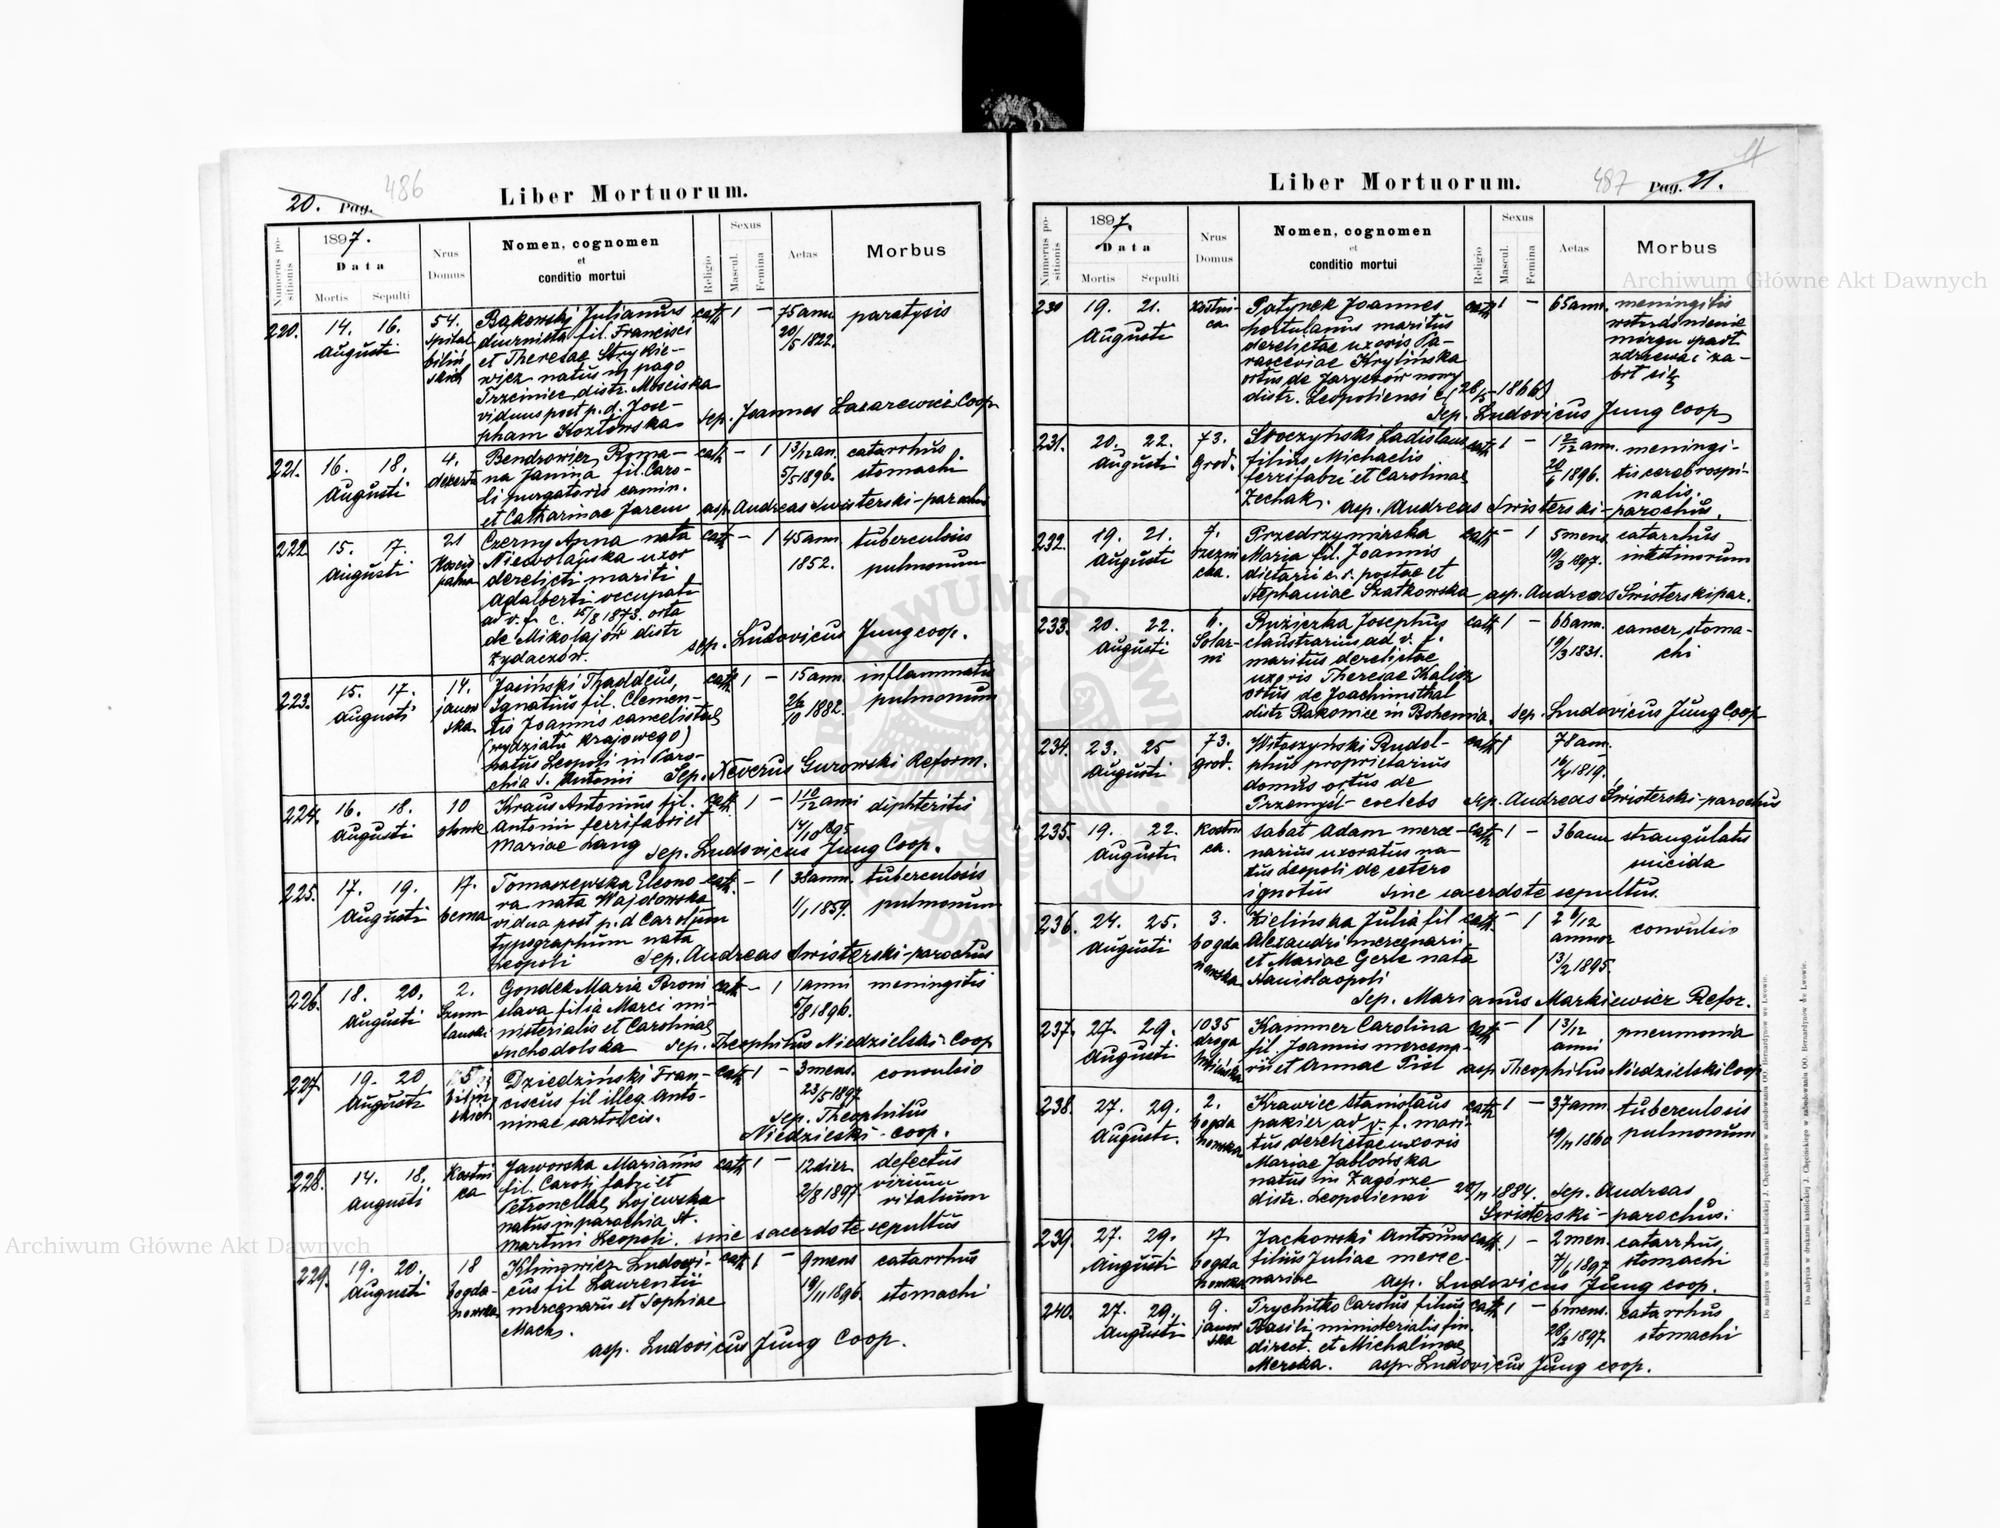 20. Pag. 486
Liber Mortuorum.
Numerus positionis
1897.
Data
Mortis Sepulti
Nrus Domus
Nomen, cognomen
et
conditio mortui
Religio
Sexus
Mascul.
Femina
Aetas
Morbus
220. 14. 16. Augusti
54. Spital bilin skich
Bąkowski Julianus
diurnista fil. Francisci
et Theresae Strykie-
wicz natus in pago
Trzciniec distr. Mosciska
viduus post p. d. Jose-
pham Kozłowska
cath 1 – 75 ann. 20/5 1822. paralysis
sep. Joannes Lazarewicz Coop
221. 16. 18. Augusti
4.
Bendrowicz Roma-
na Janina fil. Caro-
li purgatoris camin.
et Catharinae Jarem
cath – 1 1 3/12 an. 5/5 1896. catarrhus stomachi
asp. Andreas Swisterski-parochus
222 15. 17. Augusti
21
Czerny Anna nata
uxor
derelicti mariti
Adalberti occupati
ad v. f. c. 15/8 1873. orta
de Mikołajów distr
Żydaczów.
cath – 1 45 ann. 1852. tuberculosis pulmonum
sep. Ludovicus Jung coop.
223. 15. 17. Augusti
14. janow ska
Jasiński Thaddeus,
Ignatius fil. Clemen-
tis Joannis cancelistae
(wydziału krajowego)
natus Leopoli in Paro-
chia S. Antonii
cath 1 – 15 ann. 26/10 1882. inflammatio pulmonum
Sep. Xaverus Gurowski Reform.
224. 16. 18. Augusti
10
Kraus Antonius fil.
Antonii ferrifabri et
Mariae Lang
cath 1 – 1 10/12 anni 14/10 1895 diphteritis
sep. Ludovicus Jung Coop.
225. 17. 19. Augusti
17. bema
Tomaszewska Eleono-
ra nata
vidua post p. d Carolum
typographum nata
Leopoli
cath. – 1 38 ann. 1/1 1859. tuberculosis pulmonum
sep. Andreas Swisterski-parochus
226. 18. 20. Augusti
2. Szum lanski
Gondek Maria Broni
slava filia Marci mi-
nisterialis et Carolinae
Suchodolska
cath – 1 1 anni 5/8 1896. meningitis
sep. Theophilus Niedzielski-Coop
227. 19. 20 Augusti
bilin skich
Dziedziński Fran-
ciscus fil illeg. Anto-
ninae sartricis.
cath 1 – 3 mens. 23/5 1897 convulsio
sep. Theophilus
Niedzielski-coop.
228. 14. 18. Augusti
Kostni ca
Jaworska Marianus
fil. Caroli fabri et
Petronellae Łojewska
natus in parochia St.
Martini Leopoli.
cath 1 – 12 dier. 2/8 1897. defectus virium vitalium
sine sacerdote sepultus
229. 19. 20. Augusti
18 bogda-nowka
Klimowicz Ludovi-
cus fil Laurentii
mercenarii et Sophiae
Mach.
cath 1 – 9 mens 19/11 1896. catarrhus stomachi
asp. Ludovicus Jung Coop.
Liber Mortuorum.
487 Pag. 21.
Numerus positionis
1897.
Data
Mortis Sepulti
Nrus Domus
Nomen, cognomen
et
conditio mortui
Religio
Sexus
Mascul.
Femina
Aetas
Morbus
230 19. 21. Augusti
Kostni-ca
Patynek Joannes
hortulanus maritus
derelictae uxoris Pa-
rasceviae Krylińska
ortus de Jaryczów nowy
distr. Leopoliensi
cath 1 – 65 ann. meningitis
mózgu spadł
z drzewa i za-
bił się
sep. Ludovicus Jung Coop
231. 20. 22. Augusti
73. Grod.
Skoczyński Ladislaus
filius Michaelis
ferrifabri et Carolinae
Zechak.
cath 1 – 1 2/12 ann. 20/6 1896. meningi-
tis cerebrospi-
nalis.
asp. Andreas Swisterski-parochus.
232. 19. 21. Augusti
7.
Przedrzymirska
Maria fil. Joannis
dietarii c. r. postae et
Stephaniae Szatkowska
cath – 1 5 mens 19/3 1897. catarrhus intestinorum
asp. Andreas Swisterski par.
233. 20. 22. Augusti
6. Solar-ni
Ružiczka Josephus
claustrarius ad v. f.
maritus derelictae
uxoris Theresae Kalisz
ortus de Joachimsthal
distr Rakonice in Bohemia.
cath 1 – 66 ann. 19/3 1831. cancer stoma-
chi
sep. Ludovicus Jung Coop
234. 23. 25 Augusti
73. grod.
Witoszyński Rudol-
phus proprietarius
domus ortus de
Przemyśl-coelebs
cath 1 78 an. 16/4 1819.
sep. Andreas Świsterski-parochus
235. 19. 22. Augusti
Kostni ca.
Sabat Adam merce-
narius uxoratus na-
tus Leopoli de cetero
ignotus
cath 1 – 36 ann strangulatus
suicida
sine sacerdote sepultus.
236. 24. 25. Augusti
3. bogda nowska
Zielińska Julia fil
Alexandri mercenarii
et Mariae Gerle nata
Stanislaopoli
cath. – 1 2 6/12 annor 13/2 1895. convulsio
sep. Marianus Markiewicz Refor.
237. 27. 29. Augusti
1035 droga
Kammer Carolina
fil. Joannis mercena-
rii et Annae Piel
cath – 1 1 3/12 anni pneumonia
asp Theophilus Niedzielski Coop
238. 27. 29. Augusti.
2. bogda nowska
Krawiec Stanislaus
pakier ad v. f. mari-
tus derelictae uxoris
Mariae Jabłońska
natus in Zagórze
distr. Leopoliensi
cath 1 – 37 ann 19/11 1860 tuberculosis pulmonum
1884. sep. Andreas
Swisterski-parochus.
239 27. 29. Augusti
17. bogda nowka
Jackowski Antonius
filius Juliae merce-
nariae
cath 1 – 2 men. 7/6 1897 catarrhus stomachi
asp. Ludovicus Jung coop.
240. 27. 29. Augusti
9. janow ska
Prychitko Carolus filius
Basili ministerialis fin.
direct. et Michalinae
Merska.
cath 1 – 6 mens. 28/2 1897. catarrhus stomachi
asp Ludovicus Jung coop.
Do nabycia w drukarni katolickiej J. Chęcińskiego w zabudowaniu OO. Bernardynów we Lwowie.
Archiwum Główne Akt Dawnych
Archiwum Główne Akt Dawnych
ARCHIWUM GŁÓWNE AKT DAWNYCH